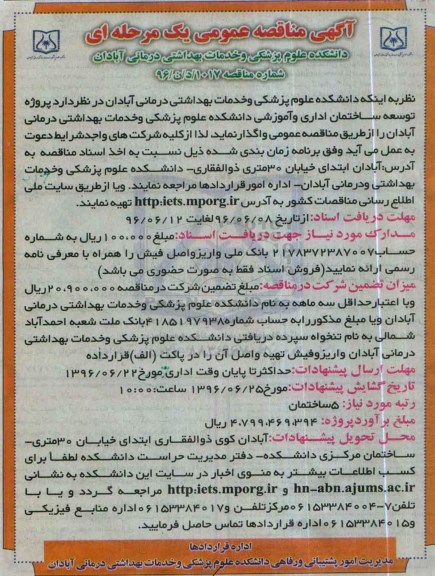 آگهی مناقصه عمومی یک مرحله ای
دانشکده علوم پزشکی وخدمات بهداشتی درمانی آبادان
شماره مناقصه ۱۰۱۷/د/ن/۹۶
نظر به اینکه دانشکده علوم پزشکی وخدمات بهداشتی درمانی آبادان در نظر دارد پروژه
توسعه ساختمان اداری وآموزشی دانشکده علوم پزشکی وخدمات بهداشتی درمانی
آبادان را از طریق مناقصه عمومی واگذار نماید، لذا از کلیه شرکت های واجد شرایط دعوت
به عمل می آید وفق برنامه زمان بندی شده ذیل نسبت به اخذ اسناد مناقصه به
آدرس:آبادان ابتدای خیابان ۳۰متری ذوالفقاری- دانشکده علوم پزشکی وخدمات
بهداشتی ودرمانی آبادان- اداره امور قراردادها مراجعه نمایند. ویا از طریق سایت ملی
اطلاع رسانی مناقصات کشور به آدرس http:iets.mporg.ir تهیه نمایند.
مهلت دریافت اسناد:از تاریخ ۹۶/۰۶/۰۸ لغایت ۹۶/۰۶/۱۲
مدارک مورد نیاز جهت دریافت اسناد:مبلغ۱۰۰،۰۰۰ریال به شماره
حساب۲۱۷۸۳۷۲۳۸۷۰۰۷ بانک ملی واریز واصل فیش را همراه با معرفی نامه
رسمی ارائه نمایید(فروش اسناد فقط به صورت حضوری می باشد)
میزان تضمین شرکت در مناقصه:مبلغ تضمین شرکت در مناقصه ۲۰,۹۰۰,۰۰۰ریال
وبا اعتبار حداقل سه ماهه به نام دانشکده علوم پزشکی وخدمات بهداشتی درمانی
آبادان ویا مبلغ مذکور را به حساب شماره۴۱۸۵۱۹۷۹۳۸بانک ملت شعبه احمدآباد
شمالی به نام تنخواه سپرده دریافتی دانشکده علوم پزشکی وخدمات بهداشتی
درمانی آبادان واریز وفیش تهیه واصل آن را در پاکت (الف)قرار داده
مهلت ارسال پیشنهادات:حداکثر تا پایان وقت اداری مورخ۱۳۹۶/۰۶/۲۲
تاریخ گشایش پیشنهادات:مورخ۱۳۹۶/۰۶/۲۵ ساعت:۱۰:۰۰
رتبه مورد نیاز: ۵ساختمان
مبلغ برآورد پروژه: ۴،۷۹۹،۴۶۹،۳۹۴ ریال
محل تحویل پیشنهادات:آبادان کوی ذوالفقاری ابتدای خیابان ۳۰متری-
ساختمان مرکزی دانشکده- دفتر مدیریت حراست دانشکده لطفا برای
کسب اطلاعات بیشتر به منوی اخبار در سایت این دانشکده به نشانی
hn-abn.ajums.ac.ir و http:iets.mporg.ir مراجعه گردد و یا با
تلفن۷-۰۶۱۵۳۳۸۴۰۰۴مرکز تلفن و۰۶۱۵۳۳۸۴۰۱۷اداره منابع فیزیکی
و۰۶۱۵۳۳۸۴۰۱۵اداره قراردادها تماس حاصل فرمایید.
اداره قراردادها
مدیریت امور پشتیبانی ورفاهی دانشکده علوم پزشکی وخدمات بهداشتی درمانی آبادان